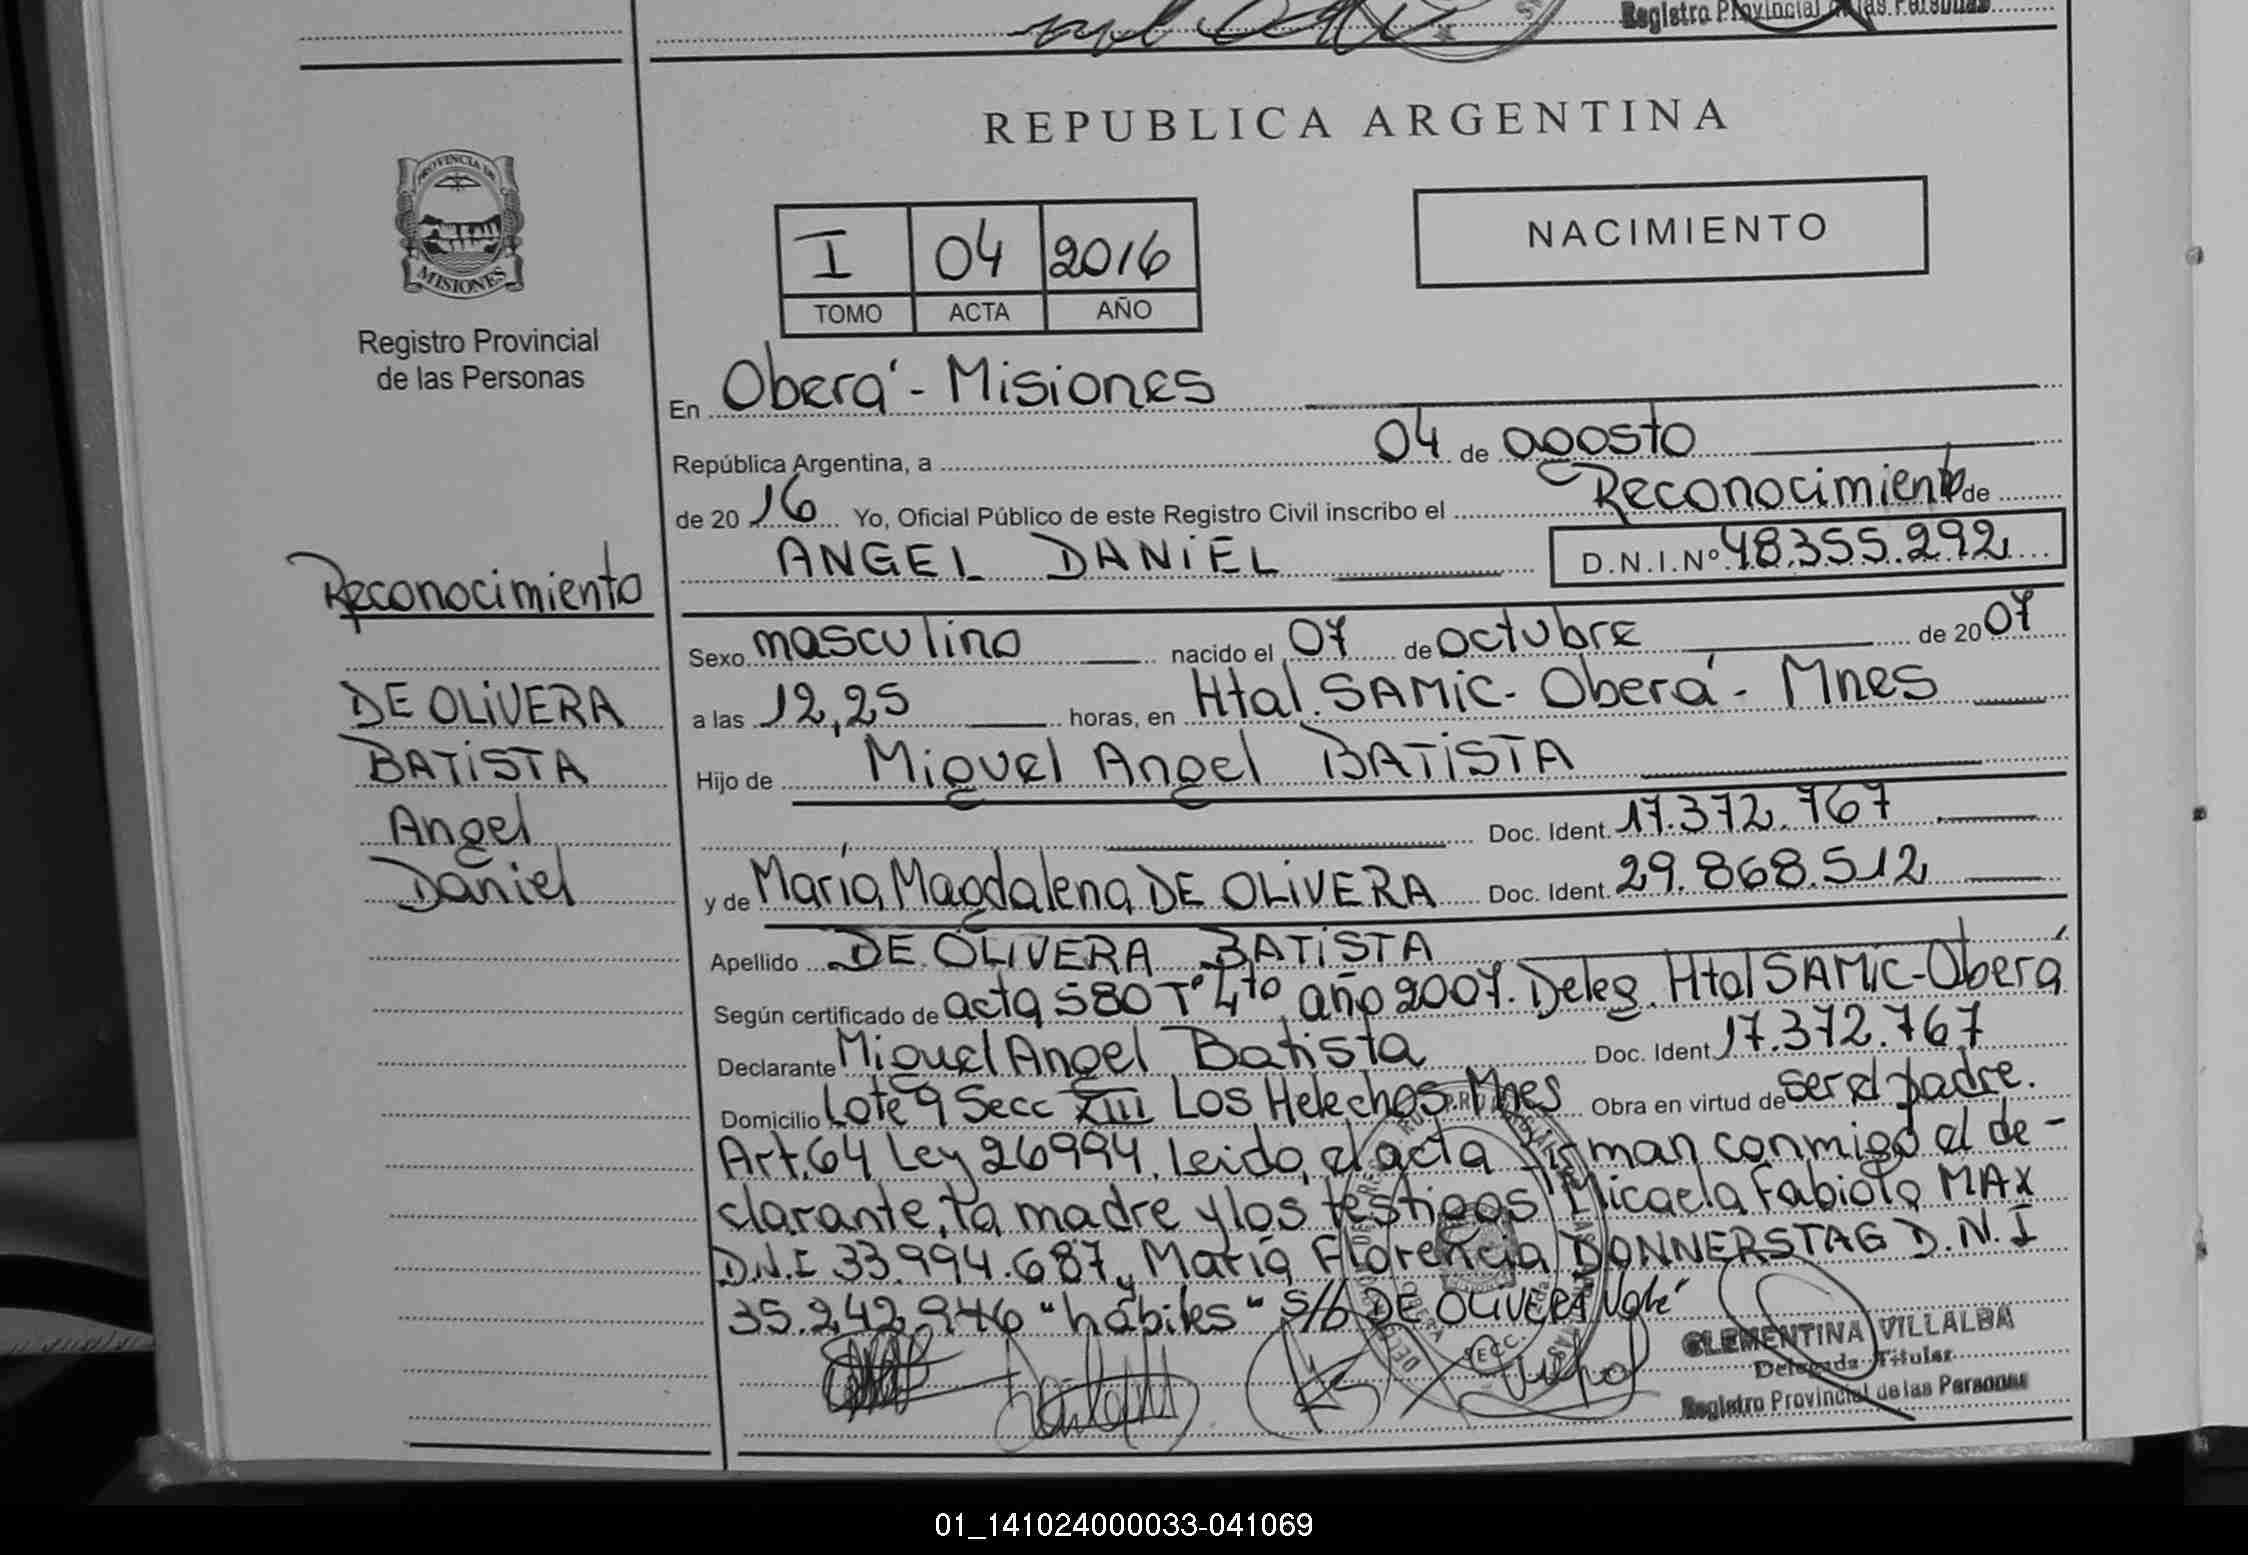 Registro Provincial de las Personas
REPUBLICA ARGENTINA
PROVINCIA DE
MISIONES
Registro Provincial
de las Personas
I 04 2016
TOMO ACTA AÑO
NACIMIENTO
En Oberá - Misiones
República Argentina, a 04 de agosto
de 20 16 Yo, Oficial Público de este Registro Civil inscribo el Reconocimiento de
ANGEL DANIEL D.N.I.Nº 48.355.292
Reconocimiento
Sexo masculino nacido el 07 de octubre de 20 07
DE OLIVERA
a las 12,25 horas, en Htal. SAMIC - Oberá - Mnes
BATISTA
Hijo de Miguel Angel BATISTA
Angel
Doc. Ident. 17.372.767
Daniel
y de María Magdalena DE OLIVERA Doc. Ident. 29.868.512
Apellido DE OLIVERA BATISTA
Según certificado de acta 580 Tº 4to año 2007. Deleg. Htal SAMIC - Oberá
Declarante Miguel Angel Batista Doc. Ident 17.372.767
Domicilio Lote 9 Secc XIII Los Helechos. Mnes Obra en virtud de ser el padre.
Art. 64 Ley 26994. leido el acta firman conmigo el de-
clarante, la madre y los testigos Micaela Fabiola MAX
D.N.I 33.994.687 y María Florencia DONNERSTAG D.N.I
35.242.946 "hábiles" s/b DE OLIVERA Vale
CLEMENTINA VILLALBA
Delegada Titular
Registro Provincial de las Personas
01_141024000033-041069